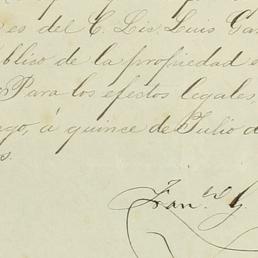 es del C. Lic. Luis Gar
blico de la propiedad e
Para los efectos legales,
ago, á quince de Julio d
s.
Fran.co G.